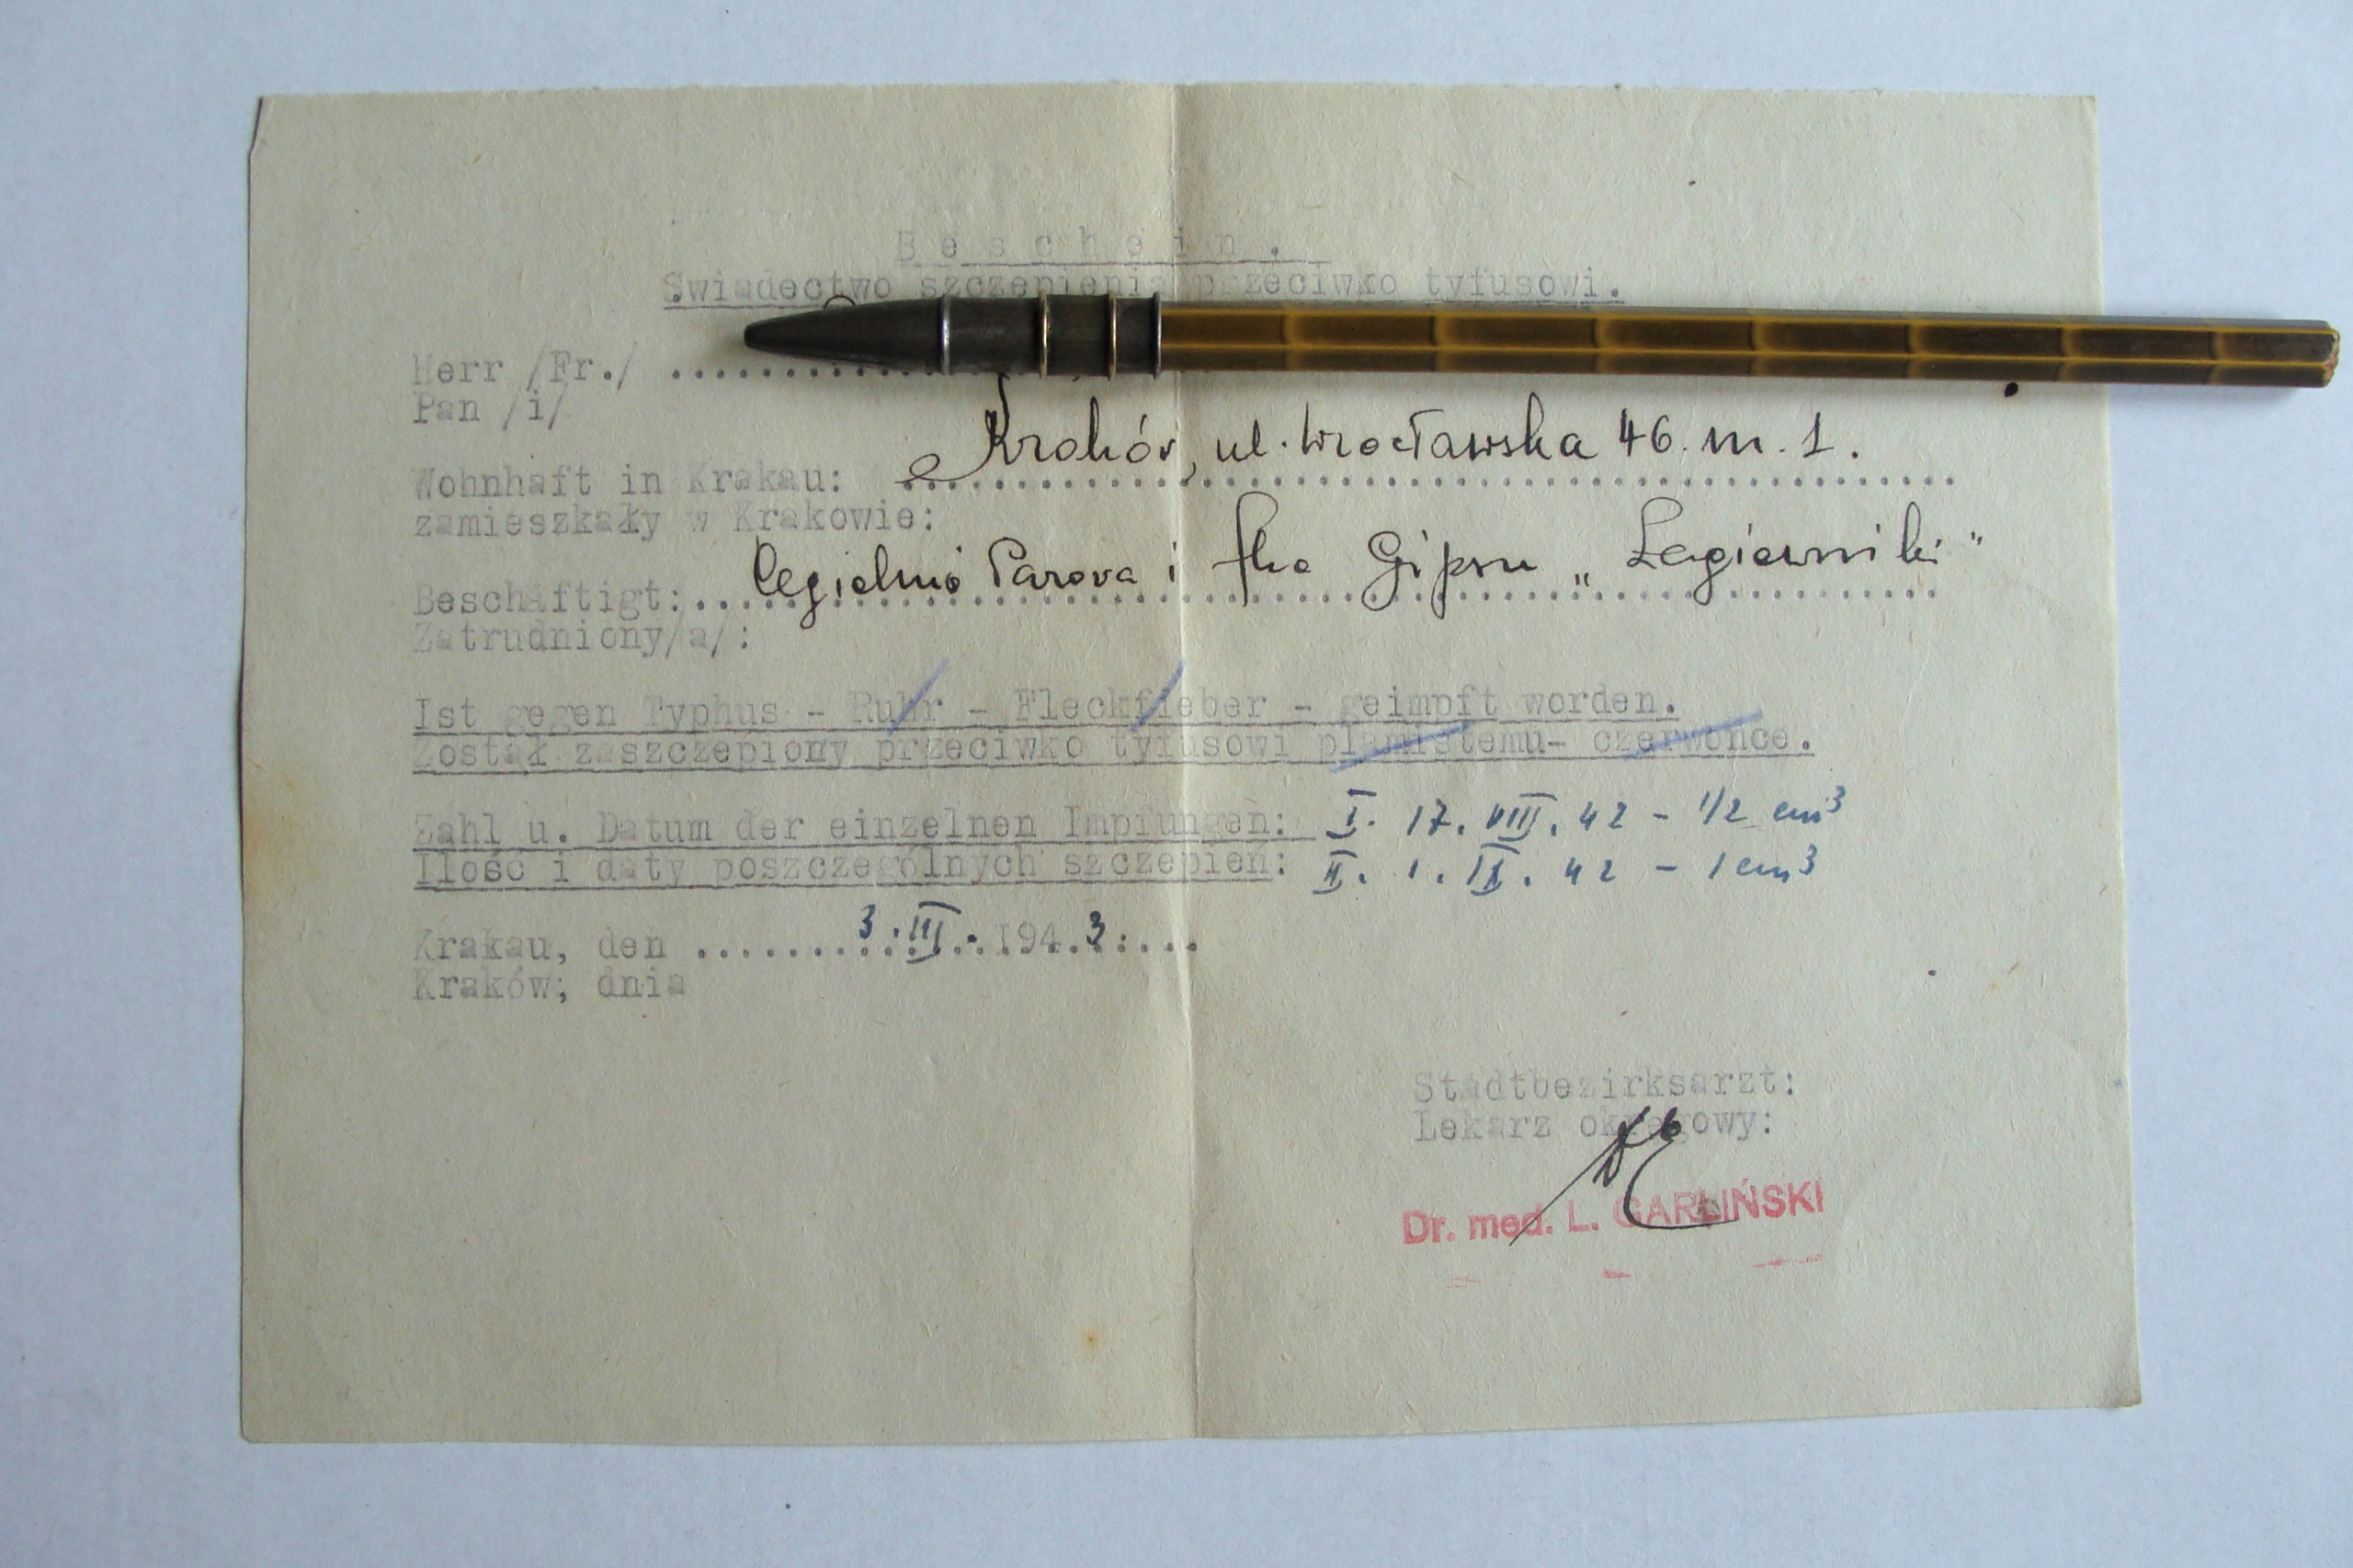 Beschein.
Swiadectwo szczepienia przeciwko tyfusowi.
Herr /Fr./ ..............
Pan /i/
Kraków, ul. Wrocławska 46. m. 1.
Wohnhaft in Krakau: ..............................
zamieszkały w Krakowie:
Cegielnia Parova i fka Gipsu „Łagiewniki"
Beschaftigt:..............................
Zatrudniony/a/:
Ist gegen Typhus - Ruhr - Fleckfieber - geimpft worden.
Został zaszczepiony przeciwko tyfusowi plamistemu- czerwonce.
Zahl u. Datum der einzelnen Impfungen: I. 17. VIII. 42 - 1/2 cm³
Ilość i daty poszczególnych szczepien: II. 1. IX. 42 - 1 cm³
Krakau, den ........3.III...194.3.....
Kraków, dnia
Stadtbezirksarzt:
Lekarz okręgowy:
Dr. med. L. GARLIŃSKI